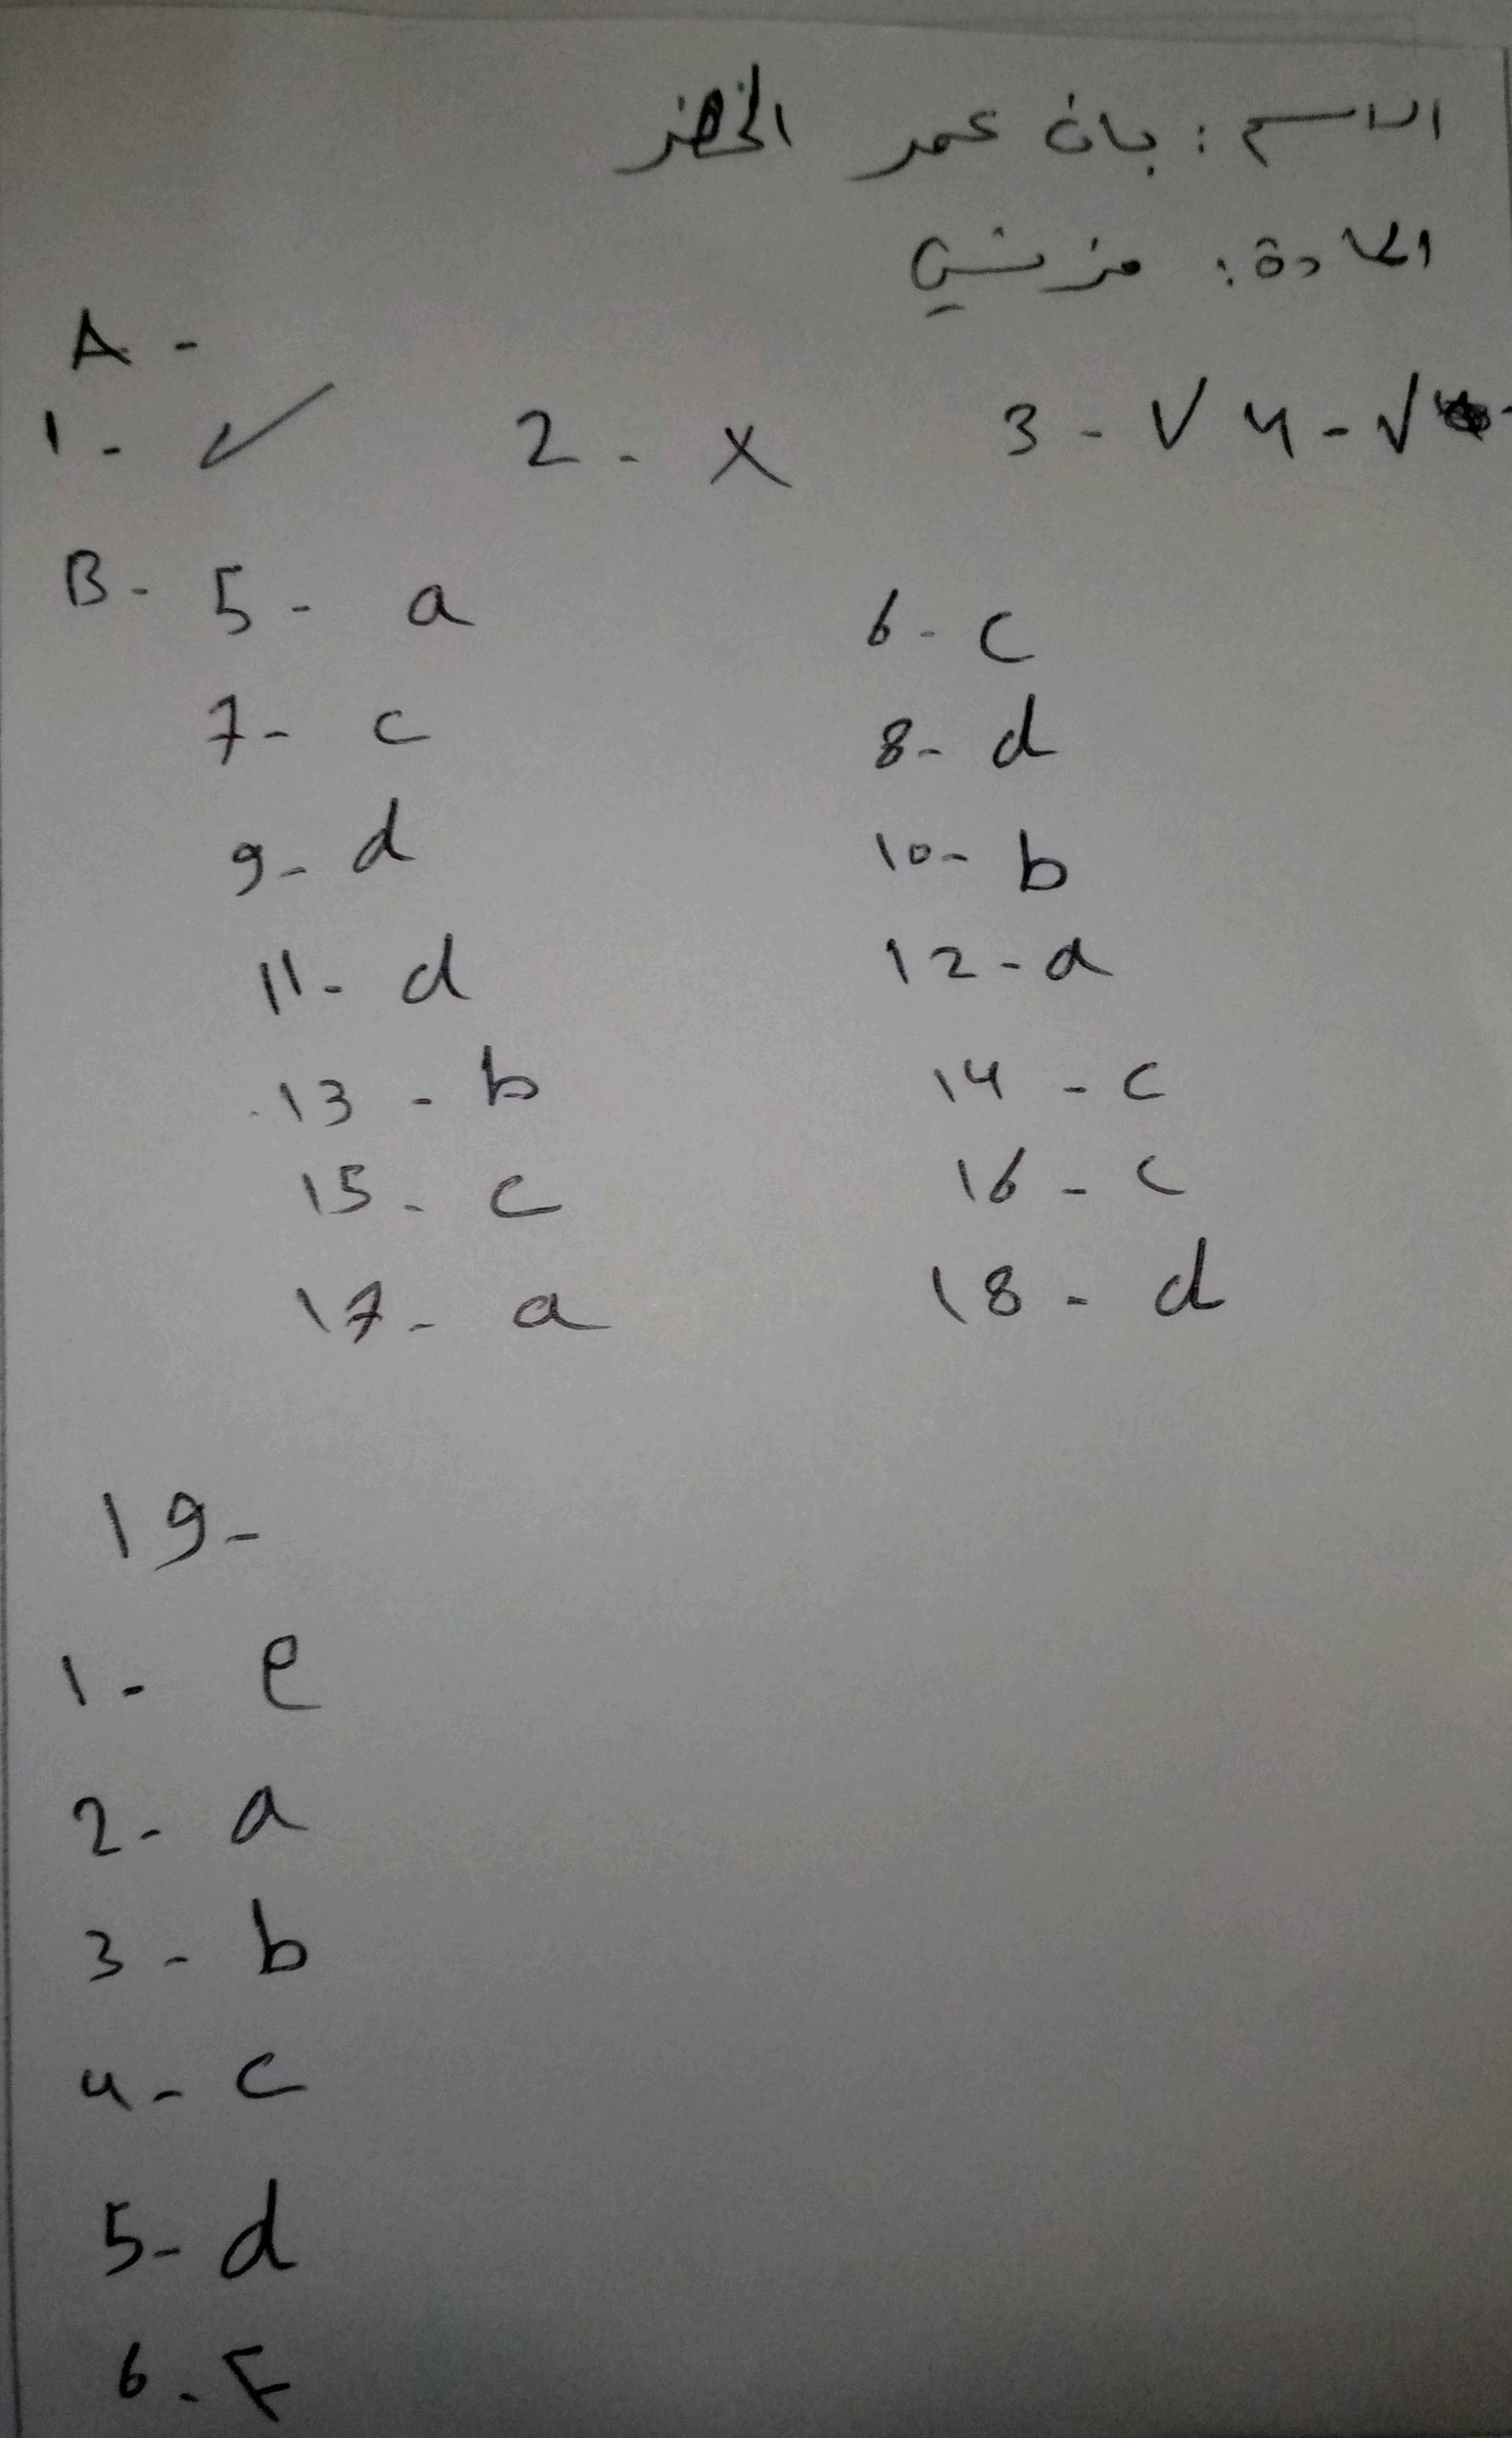 الاسم: بان عمر الخضر
المادة: فرنسي
A -
1- ✓ 2- x 3- √ 4- √
B- 5- a 6- c
7- c 8- d
9- d 10- b
11- d 12- a
13- b 14- c
15- c 16- c
17- a 18- d
19-
1- e
2- a
3- b
4- c
5- d
6- F